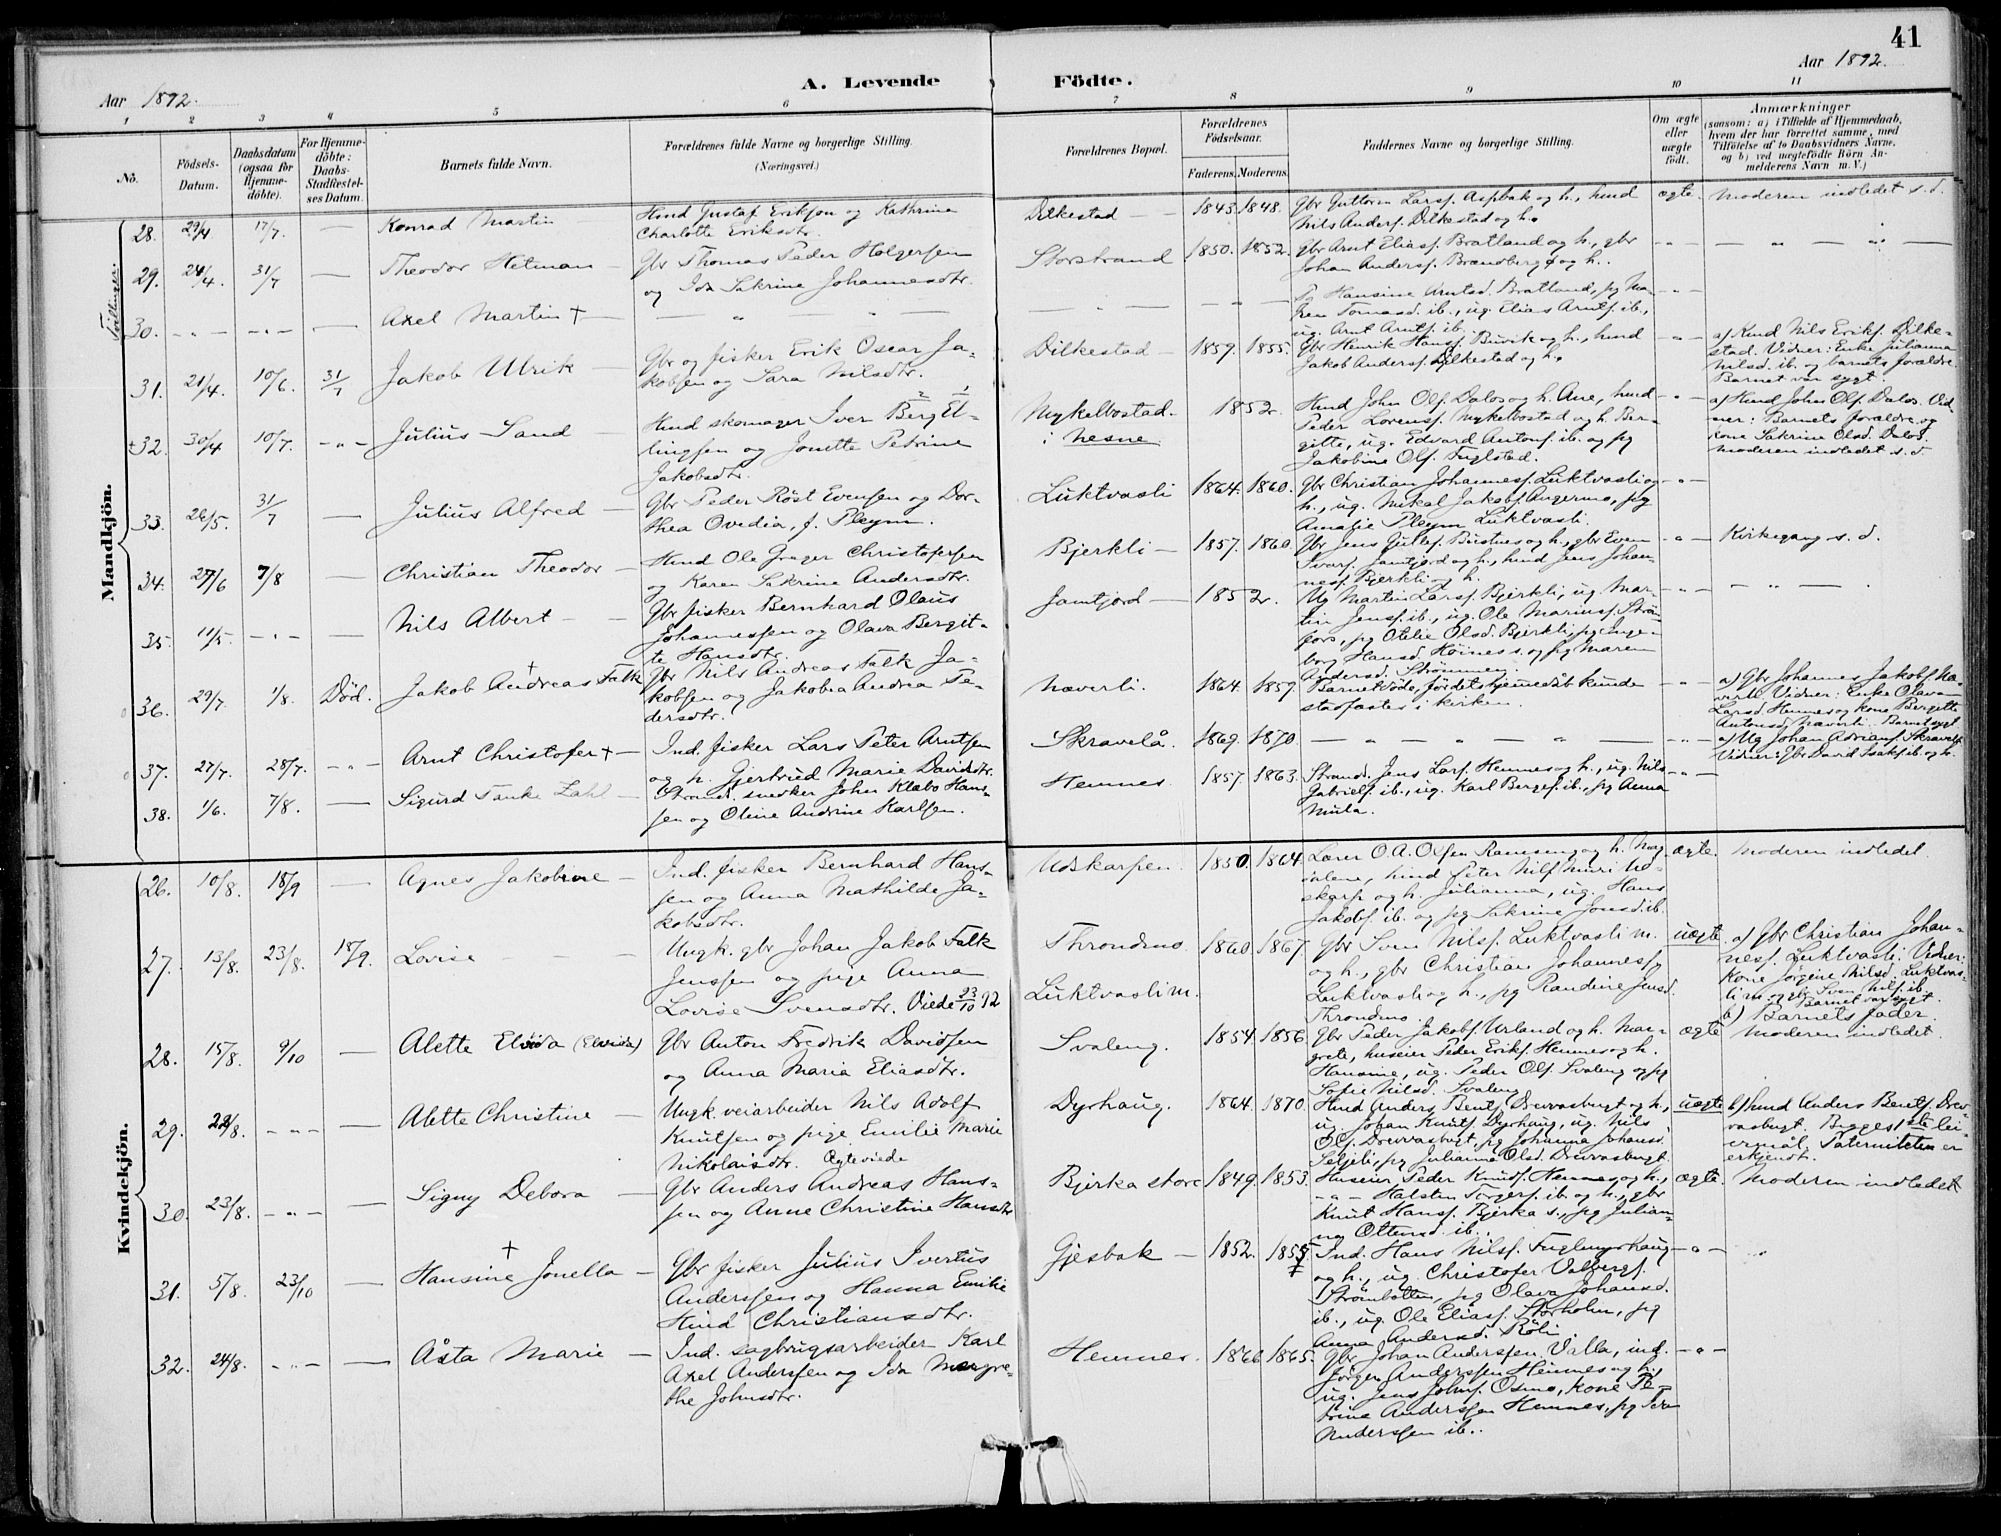 41
Aar 1892.
A. Levende Födte.
Aar 1892.
1 2 3 4 5 6 7 8 9 10 11
No.
Födsels-Datum.
Daabsdatum (ogsaa for Hjemmedöbte).
For Hjemmedöbte: Daabs-Stadfæstelses Datum.
Barnets fulde Navn.
Forældrenes fulde Navne og borgerlige Stilling. (Næringsvei.)
Forældrenes Bopæl.
Forældrenes Födselsaar.
Faderens. Moderens.
Faddernes Navne og borgerlige Stilling.
Om ægte eller uægte födt.
Anmærkninger
(saasom: a) i Tilfælde af Hjemmedaab,
hvem der har forrettet samme, med
Tilföielse af to Daabsvidners Navne,
og b) ved uægtefödte Börn Anmelderens Navn m. V.)
Mandkjön.
Tvillinger.
28. 29/4 17/7. — Konrad Martin
Hmd Gustaf Eriksen og Kathrina
Charlotte Eriksdtr.
Dilkestad — 1843. 1848.
Gbr Guttorm Larsf. Aspbak og h., hmd
Nils Andersf. Dilkestad og h.
ægte. Moderen indledet s. d.
29. 24/4. 31/7 — Theodor Hetman —
Gbr Thomas Peder Holgersen
og Ida Sakrine Johannesdtr.
Storstrand 1850. 1852.
Gbr Arnt Eliasf. Bratland og h., gbr
Johan Andersf. Brændberg og h.
-"- — " — " —
30. -"- -"- — Axel Martin + —
— " — " —
— " — — " —
Pg Hansine Arntsd. Bratland, pg Ma-
ren Tomasd. ib., ug. Elias Arntf. ib.,
ug. Arnt Arntf. ib.
-"-
31. 21/4. 10/6. 31/7 Jakob Ulrik —
Gbr og fisker Erik Oscar Ja-
kobsen og Sara Nilsdtr.
Dilkestad — 1859. 1855.
Gbr Henrik Hansf. Buvik og h., hmd
Jakob Andersf. Dilkestad og h.
-"-
a) Kmd Nils Erikf. Dilke-
stad. Vidner: Enke Julianna
Nilsd. ib. og barnets forældre.
Barnet var sygt.
+32. 30/4 10/7. -"- Julius Sand —
Hmd skomager Iver Berg El-
lingsen og Jonette Petrine
Jakobsdtr.
Nykelbostad
i Nesne
1852.
Hmd John Olf. Dalos og h. Ane, hmd
Peder Lorensf. Nykelbostad og h. Ber-
gitte, ug. Edvard Antonf. ib. og pg
Jakobine Olf. Fuglstad.
-"-
a) Hmd John Olf. Dalos. Vid-
ner: Barnets forældre og
kone Sakrine Olsd. Dalos.
Moderen indledet s. d
33. 26/5. 31/7 — Julius Alfred —
Gbr Peder Röst Evensen og Dor-
thea Ovedia, f. Pleym.
Luktvasli 1864. 1860.
Gbr Christian Johannesf. Luktvasli og
h., ug. Mikal Jakobf. Angermo, pg
Amalie Pleym Luktvasli.
-"-
34. 27/6 7/8 — Christian Theodor —
Hmd Ole Gruger Christofersen
og Karen Sakrine Andersdtr.
Bjerkli — 1857. 1860.
Gbr Jens Gullef. Bustnes og h., gbr Even
Ivarf. Jamtjord og h., hmd Jens Johan-
nesf. Bjerkli og h.
-"- Kirkegang s. d.
35. 11/5. -"- — Nils Albert —
Gbr fisker Bernhard Olaus
Johannessen og Olava Bergit-
te Hansdtr.
Jamtjord — 1852.
Ug Martin Larsf. Bjerkli, ug. Mar-
tin Jensf. ib., ug. Ole Mariusf. Ström-
fors, pg Otelie Olsd. Bjerkli, pg Inge-
borg Hansd. Höines og pg Maren
Andersd. Strömmen.
-"- — " — .
36. 29/7. 1/8. Död. Jakob Andreas Falk +
Gbr Nils Andreas Falk Ja-
kobsen og Jakobea Andrea Pe-
dersdtr.
Næverli. 1864. 1859.
Barnet döde, för dets hjemmedåb kunde
stadfæstes i kirken.
-"-
a) Gbr Johannes Jakobf. Næ-
verli. Vidner: Enke Olava
Larsd Hemnes og kone Bergitte
Antonsd. Næverli. Barnet sygt
37. 27/7. 28/7. -"- Arnt Christofer + —
Ind. fisker Lars Peter Arntsen
og h. Gjertrud Marie Davidsdtr.
Skravelå. 1869. 1870
— " — " — " —
-"-
a) Ug Johan Adrianf. Skravelå
Vidner: Gbr David Isakf. ib. og h.
38. 1/6. 7/8. — Sigurd Tanke Zahl —
Strands. snedker John Klæbo Han-
sen og Oline Andrine Karlsen.
Hemnes. 1857. 1863.
Strands. Jens Larf. Hemnes og h., ug. Nils
Gabrielf. ib., ug. Karl Bergef. ib., pg Anna
Mula.
-"-
Kvindekjön.
26. 10/8. 18/9 — Agnes Jakobine —
Ind. fisker Bernhard Han-
sen og Anna Mathilde Ja-
kobsdtr.
Utskarpen. 1850. 1864.
Lærer O. A. Olsen Ramseng og h. Mag-
dalene, hmd Peter Nilf. Muri Ut-
skarp og h. Julianna, ug. Hans
Jakobf. ib. og pg Sakrine Jonsd. ib.
ægte. Moderen indledet.
27. 13/8. 23/8. 18/9. Lovise — — —
Ungk. gbr Johan Jakob Falk
Jenssen og pige Anna
Lovise Svensdtr. Viede 23/10 92
Throndmo.
Luktvasli m.
1860. 1867.
Gbr Sven Nilsf. Luktvasli m.
og h., gbr Christian Johannesf.
Luktvasli og h., pg Randine Jensd.
Throndmo.
uægte
a) Gbr Christian Johan-
nesf. Luktvasli. Vidner:
Kone Jörgine Nilsd. Luktvas-
li m. og gbr Sven Nilf. ib.
Barnet var sygt.
b) Barnets fader.
28. 15/8. 9/10 — Alette Elvida (Elvida)
Gbr Anton Fredrik Davidsen
og Anna Maria Eliasdtr.
Svaleng. 1854. 1856.
Gbr Peder Jakobf. Urland og h. Mar-
grete, huseier Peder Erikf. Hemnes og h.
Hansine, ug. Peder Olf. Svaleng og pg
Sofie Nilsd. Svaleng
ægte Moderen indledet.
29. 22/8. -"- Alette Christine —
Ungk. veiarbeider Nils Adolf
Knutsen og pige Emilie Marie
Nikolaisdtr. Ægteviede
Dyrhaug. 1864. 1870.
Hmd Anders Bentf. Drevvasbugt og h.,
ug. Johan Knutf. Dyrhaug, ug. Nils
Olf. Drevvasbugt, pg Johanna Johansd.
Seljeli, pg Julianna Olsd. Drevvasbugt.
uægte
b) hmd Anders Bentf. Drev-
vasbugt. Begges 1ste lei-
ermål. Paterniteten er
erkjendt.
30. 23/8. -"- — Signy Debora —
Gbr Anders Andreas Hans-
sen og Anne Christine Hansdtr
Bjerka store 1849. 1853.
Huseier Peder Knudf. Hemnes og h.,
-"- Halsten Torgersf. ib. og h., gbr
Knut Hansf. Bjerka s., pg Julian-
na Ottersd. ib.
ægte. Moderen indledet
31. 5/8. 23/10 — Hansine Jonella + —
Gbr fisker Julius Ivertus
Anderssen og Hanna Emilie
Hmd Christiansdtr.
Gjesbak — 1852. 1857
Ind. Hans Nilsf. Fuglmyrhaug
og h., ug. Christofer Valbergf.
Strömbotten, pg Olava Johansd.
ib., ug. Ole Eliasf. Storholm, pg
Anna Andersd. Röli
-"- "
32. 24/8. -"- — Åsta Marie —
Ind. sagbrugsarbeider Karl
Axel Anderssen og Ida Margre-
the Johnsdtr.
Hemnes. 1866. 1865.
Gbr Johan Anderssen Valla, ind.
Jörgen Anderssen Hemnes og h.,
ug. Jens Johnf. Osmo, kone Pe-
trine Anderssen Hemnes, pg Petra
Anderssen ib..
-"-